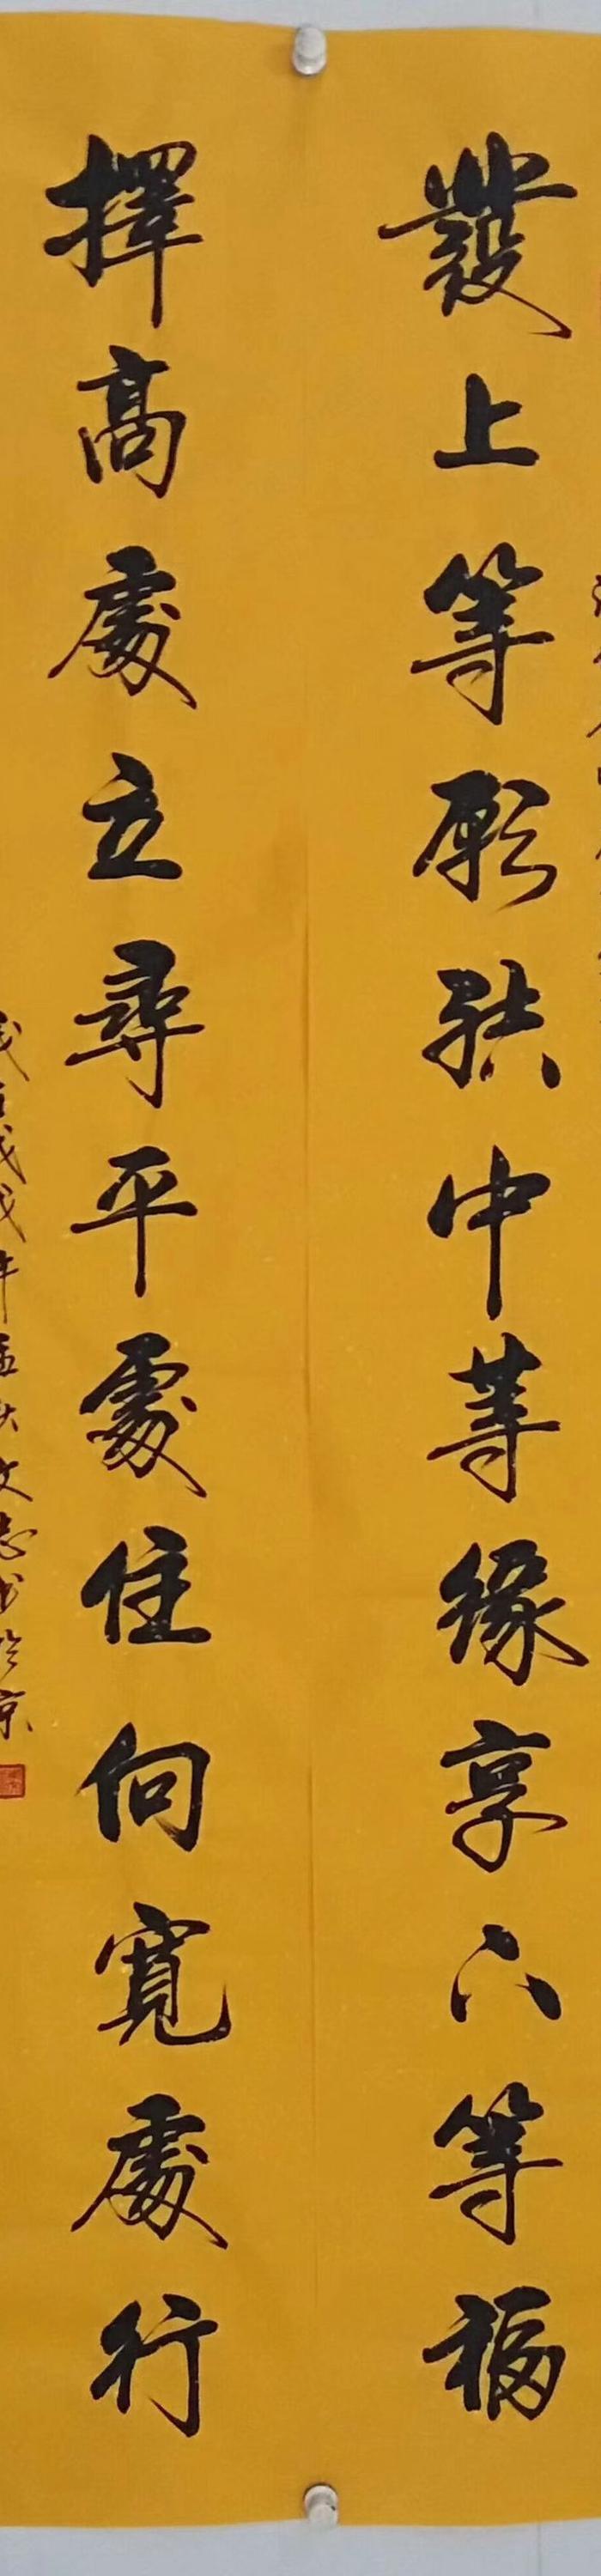 發上等願結中等緣享下等福
擇高處立尋平處住向寬處行
歲在戊戌年孟秋文志書於京